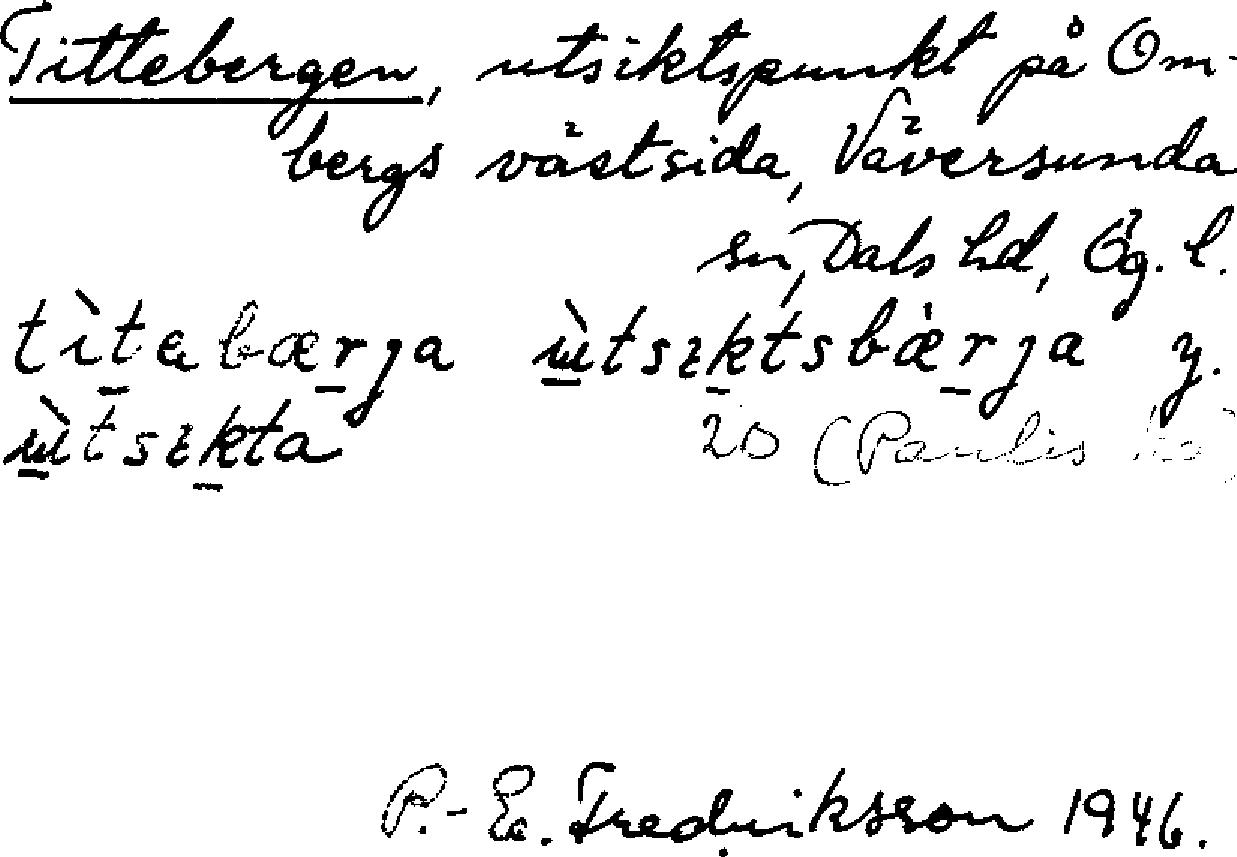 Tittebergen, utsiktspunkt på Om-
bergs västsida, Väversunda
sn, Dals hd, Ög. l.
tìtabærja ùtsıktsbæ̀rja y.
ùtsıkta 20 (Paulis
P.-E. Fredriksson 1946.